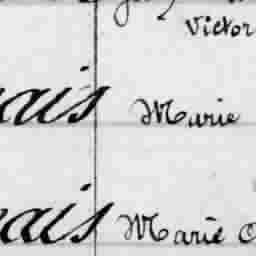 Victor
ais Marie
ais Marie